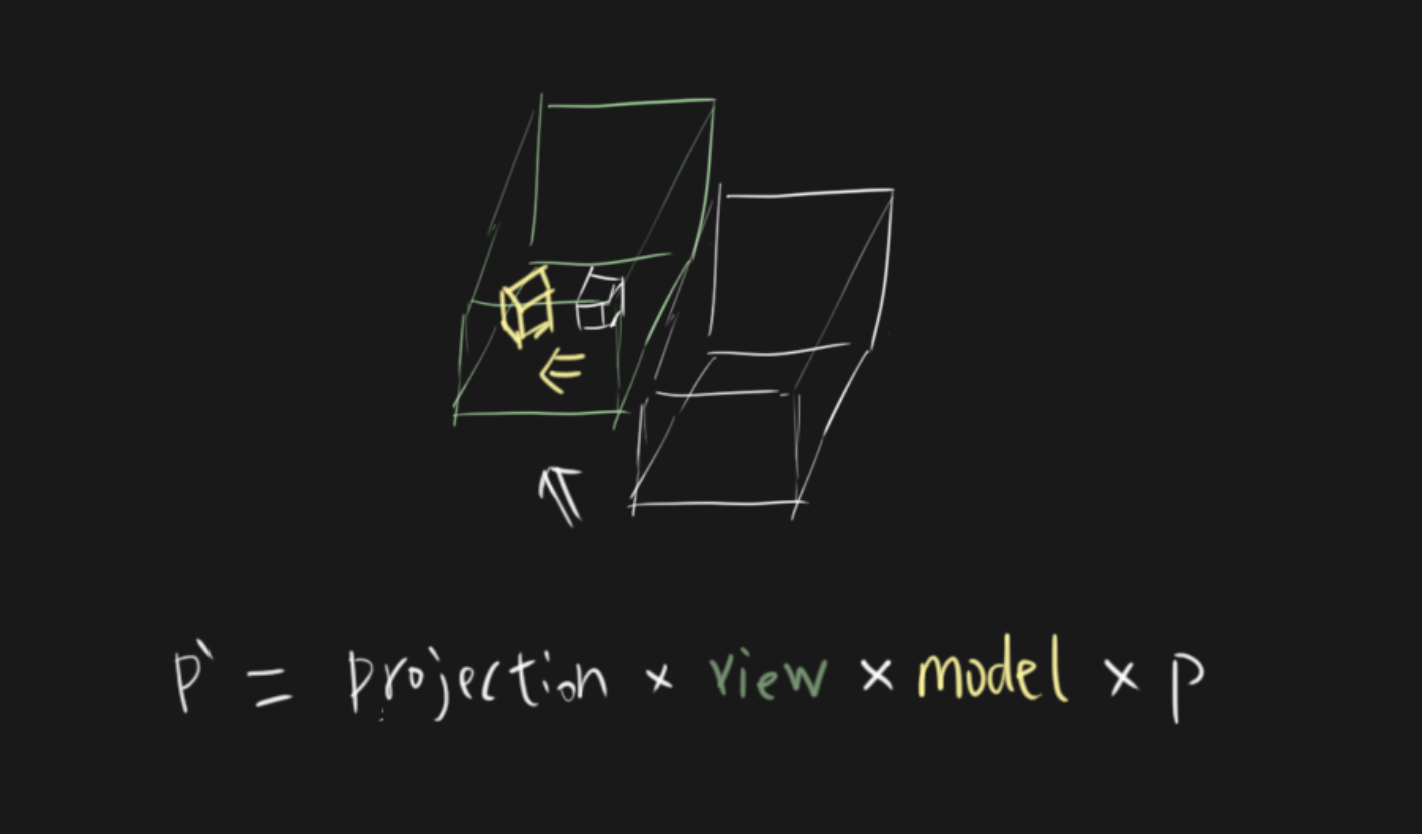 p` = projection × view × model × p